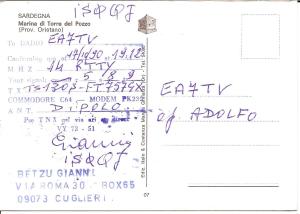 ISØQQJ
SARDEGNA
Marina di Torre del Pozzo
(Prov. Oristano)
To RADIO EA7TV
Confirming our QSO 17/10/90 19.12
MHZ 14 RTTY
Your signals 5 8 9
TX TS-130S-FT 757GX
COMMODORE C64 - MODEM PK232
ANT. DIPOLO
Pse TNX qsl via
VY 73 - 51
Gianni
ISØQQJ
BETZU GIANNI
VIA ROMA 30 BOX65
09073 CUGLIERI
EA7TV
op. ADOLFO
07